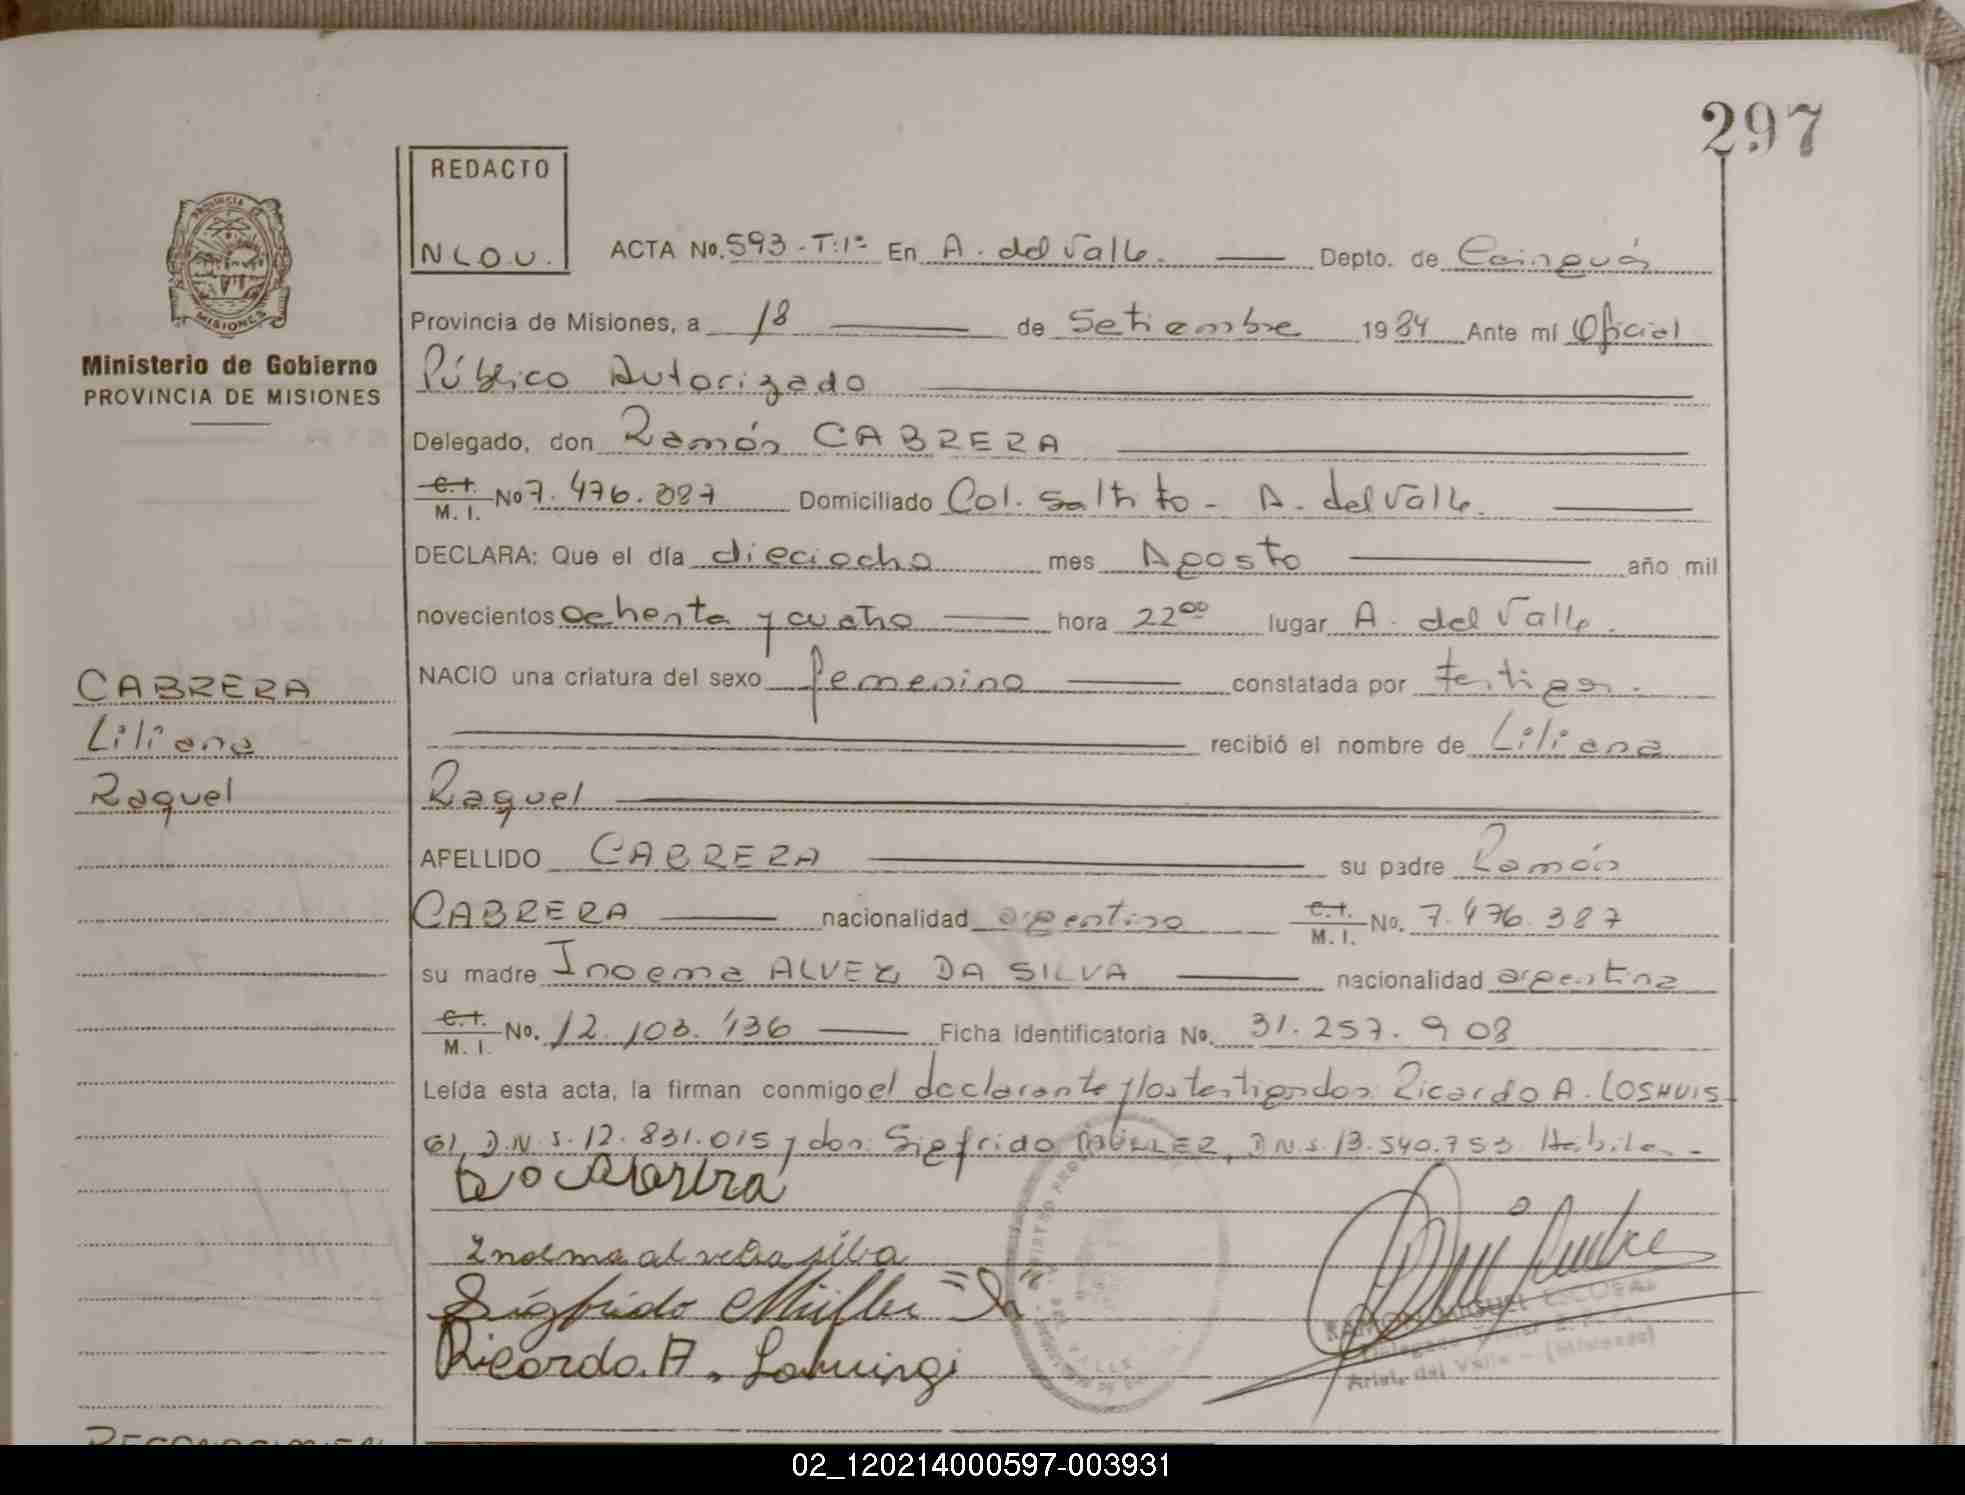 297
REDACTO
N L O.U.
ACTA No. 593-T:1º En A. del Valle. Depto. de Cainguás
Provincia de Misiones, a 18 de Setiembre 1984 Ante mí Oficial
Público Autorizado
Delegado, don Ramón CABRERA
C.I. M. I. No 7.476.387 Domiciliado Col. Saltito - A. del Valle.
DECLARA: Que el día dieciocho mes Agosto año mil
novecientos ochenta y cuatro hora 22⁰⁰ lugar A. del Valle.
NACIO una criatura del sexo femenino constatada por testigos.
recibió el nombre de Liliana
Raquel
APELLIDO CABRERA su padre Ramón
CABRERA nacionalidad argentino C.I. M. I. No. 7.476.387
su madre Inoema ALVEZ DA SILVA nacionalidad argentina
C.I. M. I. No. 12.103.436 Ficha identificatoria No. 31.257.908
Leída esta acta, la firman conmigo el declarante y los testigos don: Ricardo A. LOSHUIS
GI, D.N.I. 12.831.015 y don: Sigfrido MÜLLER, D.N.I. 13.540.753 Hábiles.-
Sigfrido Müller
Ricardo. A.
RAMON MIGUEL ESCOBAR
Delegado
Arist. del Valle - (Misiones)
PROVINCIA DE
MISIONES
Ministerio de Gobierno
PROVINCIA DE MISIONES
CABRERA
Liliana
Raquel
02_120214000597-003931